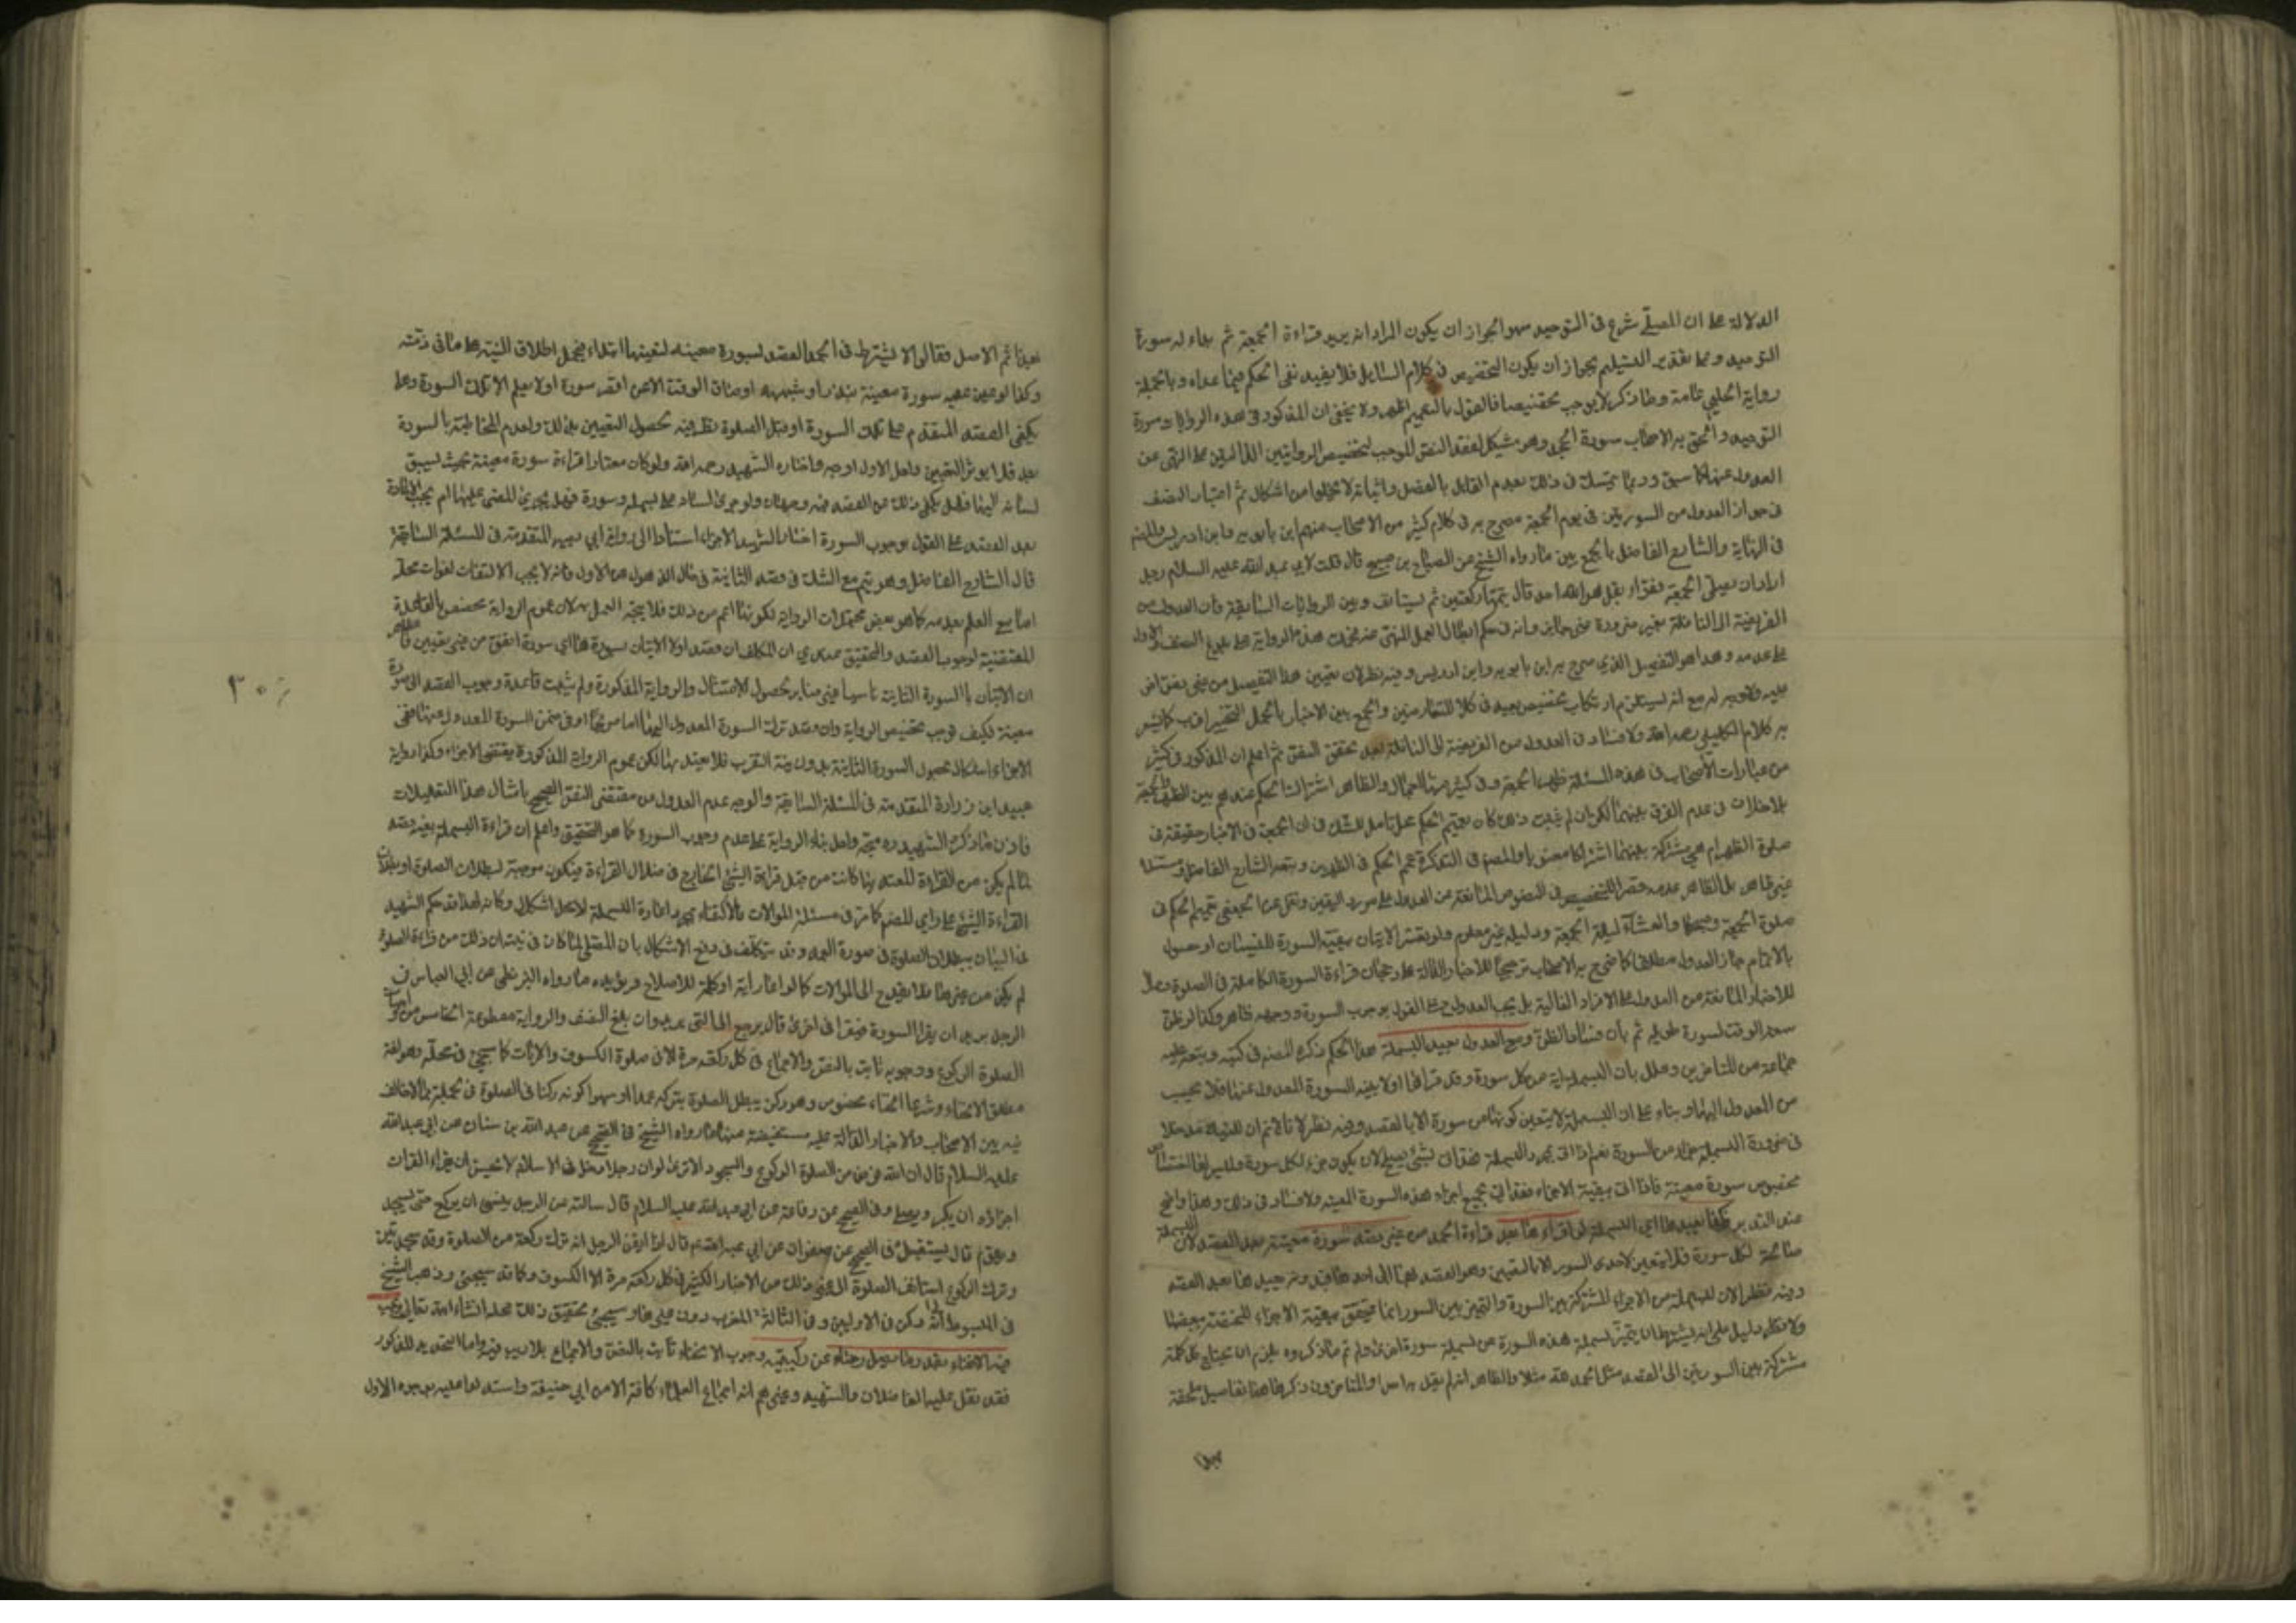 الدلالة على ان المصلي شرع في التوحيد سهوا لجواز ان يكون المراد انه يريد قراءة الجمعة ثم بداء له سورة
التوحيد وعلى تقدير التسليم يجوز ان يكون التخصيص في كلام السائل فلا يفيد نفي الحكم فيما عداه وبالجملة
رواية الحلبي عامة وما ذكر لا يوجب تخصيصا فالقول بالتعميم اظهر ولا يخفى ان المذكور في هذه الروايات سورة
التوحيد والحق به الاصحاب سورة الجحد وهو مشكل لفقد النص الموجب لتخصيص الروايتين الدالتين على النهي عن
العدول عنها كما سبق وربما يتمسك في ذلك بعدم القائل بالفصل واثباته لا يخلو من اشكال ثم اعتبار النصف
في جواز العدول من السورتين في يوم الجمعة مصرح به في كلام كثير من الاصحاب منهم ابن بابويه وابن ادريس والمص
في النهاية والشارح الفاضل بالجمع بين ما رواه الشيخ عن الصباح بن صبيح قال قلت لابي عبد الله عليه السلام رجل
اراد ان يصلي الجمعة فقراء بقل هو الله احد قال يتمها ركعتين ثم يستانف وبين الروايات السابقة فان العدول من
الفريضة الى النافلة بغير ضرورة غير جايز وانه في حكم ابطال العمل المنهي عنه فحملت هذه الرواية على بلوغ النصف والاول
على عدمه وهذا هو التفصيل الذي صرح به ابن بابويه وابن ادريس وفيه نظر لان تعيين هذا التفصيل من غير نص
عليه لا وجه له مع انه يستلزم ارتكاب تخصيص بعيد في كلا المتعارضين والجمع بين الاخبار بالحمل التخيير اقرب كما يشعر
به كلام الكليني رحمه الله ولا فساد في العدول من الفريضة الى النافلة بعد تحقق النص ثم اعلم ان المذكور في كثير
من عبارات الاصحاب في هذه المسئلة ظهر الجمعة وفي كثير منها اجمال والظاهر اشتراك الحكم عندهم بين الظهر والجمعة
بلا خلاف في عدم الفرق بينهما لكن ان لم يثبت ذلك كان تعميم الحكم محل تامل للشك في ان الجمعة في الاخبار حقيقة في
صلوة الظهر ام هي مشتركة بينهما اشتراكا معنويا والمص في التذكرة عمم الحكم في الظهرين وتبعه الشارح الفاضل
غير ظاهر بل الظاهر عدمه قصرا للتخصيص في النصوص المانعة من العدول على مورد اليقين ونقل عن الجعفي تعميم الحكم في
صلوة الجمعة وصبحها والعشاء ليلة الجمعة ودليله غير معلوم ولو تعسر الاتيان ببقية السورة للنسيان او حصول
بالاتمام جاز العدول مطلقا كما صرح به الاصحاب ترجيحا للاخبار الدالة على رجحان قراءة السورة الكاملة في الصلوة
للاخبار المانعة من العدول على الافراد الغالبة بل يجب العدول على القول بوجوب السورة ووجهه ظاهر وكذا لو ظن
سعة الوقت لسورة طويلة ثم بان فساد الظن ومع العدول يعيد البسملة هذا الحكم ذكره المص في كتبه وتبعه عليه
جماعة من المتاخرين وعلل بان البسملة اية من كل سورة وقد قراها اولا بنية السورة المعدول عنها فلا يحسب
من المعدول اليها وبناء على ان البسملة لا يتعين كونها من سورة الا بالقصد وفيه نظر
محصوص سورة معينة فاذا اتى ببقية الاجزاء فقد اتى بجميع اجزاء هذه السورة المعينة ولا فساد في ذلك وهذا واضح
عند التدبر وكذا يعيدها اي البسملة لو قراءها بعد قراءة الحمد من غير قصد سورة معينة بعد القصد لان البسملة
صالحة لكل سورة فلا يتعين لاحدى السور الا بالتعيين وهو القصد
وفيه نظر لان البسملة من الاجزاء المشتركة بين السورة والتميز بين السور انما يتحقق ببقية الاجزاء المختصة ببعضها
ولا نظفر دليل على انه يشترط ان يتميز بسملة هذه السورة عن بسملة سورة اخرى ولو تم ما ذكروه يلزم ان يحتاج كل كلمة
مشتركة بين السورتين الى القصد مثل الحمد لله مثلا والظاهر انه لم يقل به احد والمتاخرون ذكروا ههنا تفاصيل ملحقة
بهذا
بهذا ثم الاصل فقالوا لا يشترط في الحمد القصد لسورة معينة لتعينها ابتداء فيحمل اطلاق النية على ما في ذمته
وكذا لو عين عليه سورة معينة بنذر او شبهه او ضاق الوقت الا عن اقصر سورة او لا يعلم الا تلك السورة وهل
يكفي القصد المتقدم على تلك السورة او قبل الصلوة نظر فيه لحصول التعيين بذلك ولعدم المخاطبة بالسورة
بعد فلا يؤثر التعيين ولعل الاول اوجه واختاره الشهيد رحمه الله ولو كان معتادا قراءة سورة معينة بحيث يسبق
لسانه اليها فهل يكفي ذلك عن القصد فيه وجهان ولو جرى لسانه على بسملة وسورة فهل يجزي المضي عليها ام يجب الاعادة
بعد القصد على القول بوجوب السورة اختار الشهيد الاجزاء استنادا الى رواية ابي بصير المتقدمة في المسئلة السابقة
قال الشارح الفاضل وهو يتم مع الشك في قصد الثانية في حال الذهول عن الاول فانه لا يجب الالتفات لفوات محله
اما مع العلم بعدمه كما هو بعض محتملات الرواية لكونها اعم من ذلك فلا يتجه العمل بها لان عموم الرواية مخصوص بالقاعدة
المقتضية لوجوب القصد والتحقيق عندي ان المكلف ان قصد اولا الاتيان بسورة ما اي سورة اتفق من غير تعيين فالظاهر
ان الاتيان بالسورة الثانية ناسيا غير مناف لحصول الامتثال والرواية المذكورة ولم يثبت قاعدة وجوب القصد الى سورة
معينة فكيف توجب تخصيص الرواية وان قصد ترك السورة المعدول اليها اما صريحا او في ضمن السورة المعدول عنها ففي
الاجزاء اشكال لحصول السورة الثانية بدون نية القرب فلا يعتد بها لكن عموم الرواية المذكورة يقتضي الاجزاء وكذا رواية
عبيد ابن زرارة المتقدمة في المسئلة السابقة والوجه عدم العدول من مقتضى النص الصحيح بامثال هذا التعليلات
فاذن ما ذكره الشهيد ره متجه ولعل بناء الرواية على عدم وجوب السورة كما هو التحقيق واعلم ان قراءة البسملة بغير قصد
لما لم يكن من القراءة المعتد بها كانت من قبيل قراءة الشيء الخارج في خلال القراءة فيكون موجبة لبطلان الصلوة او بطلان
القراءة الشيخ على راي المص كما مر في مسئلة الموالات فالاكتفاء بمجرد اعادة البسملة لا يخلو اشكال وكانه لهذا قد حكم الشهيد
في البيان ببطلان الصلوة في صورة العمد وقد يتكلف في دفع الاشكال بان المصلي لما كان في نيته ان ذلك من قراءة الصلوة
لم يكن من غيرها فلا يقدح الى الموالات كما لو اعاد اية او كلمة للاصلاح ويؤيده ما رواه البزنطي عن ابي العباس في
الرجل يريد ان يقرا السورة فيقرا في اخرى قال يرجع الى التي يريد وان بلغ النصف والرواية مقطوعة الخامس من واجبات
الصلوة الركوع ووجوبه ثابت بالنص والاجماع في كل ركعة مرة الا في صلوة الكسوف والايات كما سيجئ في محله وهو لغة
مطلق الانحناء وشرعا انحناء مخصوص وهو ركن يبطل الصلوة بتركه عمدا او سهوا وكونه ركنا في الصلوة في الجملة مما لا خلاف
فيه بين الاصحاب والاخبار الدالة عليه مستفيضة منها ما رواه الشيخ في الصحيح عن عبد الله بن سنان عن ابي عبد الله
عليه السلام قال ان الله فرض من الصلوة الركوع والسجود الا ترى لو ان رجلا دخل في الاسلام لا يحسن ان يقراء القران
اجزاه ان يكبر ويصلي وفي الصحيح عن رفاعة عن ابي عبد الله عليه السلام قال سالته عن الرجل ينسى ان يركع حتى يسجد
ويقوم قال يستقبل وفي الصحيح عن صفوان عن ابي بصير عن ابي عبد الله ع قال اذا ايقن الرجل انه ترك ركعة من الصلوة وقد سجد سجدتين
وترك الركوع استانف الصلوة الى غير ذلك من الاخبار الكثيرة في كل ركعة مرة الا الكسوف وكانه سيجئ وذهب الشيخ
في المبسوط الى انه ركن في الاوليين وفي الثالثة المغرب دون غيرها وسيجئ تحقيق ذلك في محله انشاء الله تعالى ويجب
فيه الانحناء بقدر وضع يديه على ركبتيه وجوب الانحناء ثابت بالنص والاجماع بلا ريب فيه واما التحديد المذكور
فقد نقل عليه الفاضلان والشهيد وغيرهم انه اجماع العلماء كافة الا من ابي حنيفة واستدلوا عليه بوجوه الاول
٣٠